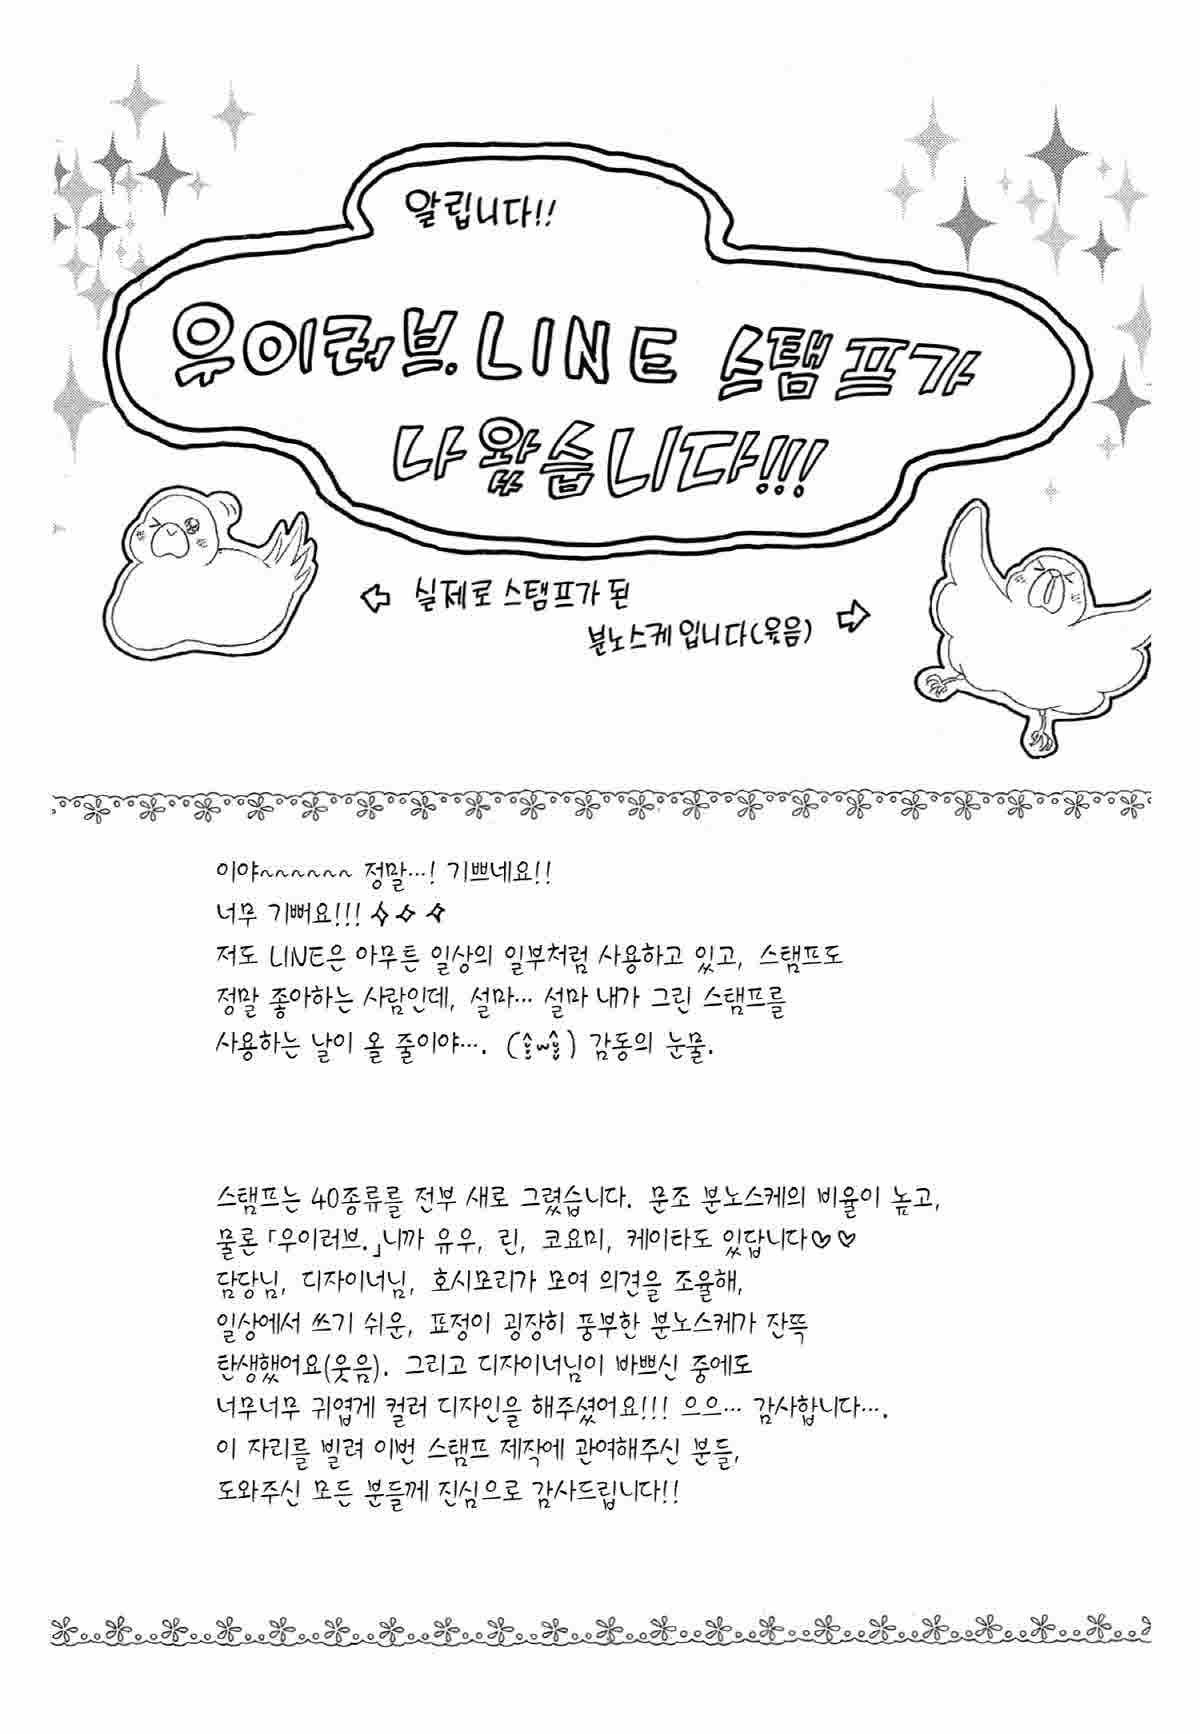 알립니다!!
우이러브. LINE 스탬프가
나왔습니다!!!
실제로 스탬프가 된
분노스케입니다(웃음)
이야~~~~~~ 정말…! 기쁘네요!!
너무 기뻐요!!!
저도 LINE은 아무튼 일상의 일부처럼 사용하고 있고, 스탬프도
정말 좋아하는 사람인데, 설마… 설마 내가 그린 스탬프를
사용하는 날이 올 줄이야…. 감동의 눈물.
스탬프는 40종류를 전부 새로 그렸습니다. 문조 분노스케의 비율이 높고,
물론 「우이러브.」니까 유우, 린, 코요미, 케이타도 있답니다♡♡
담당님, 디자이너님, 호시모리가 모여 의견을 조율해,
일상에서 쓰기 쉬운, 표정이 굉장히 풍부한 분노스케가 잔뜩
탄생했어요(웃음). 그리고 디자이너님이 바쁘신 중에도
너무너무 귀엽게 컬러 디자인을 해주셨어요!!! 으으… 감사합니다….
이 자리를 빌려 이번 스탬프 제작에 관여해주신 분들,
도와주신 모든 분들께 진심으로 감사드립니다!!